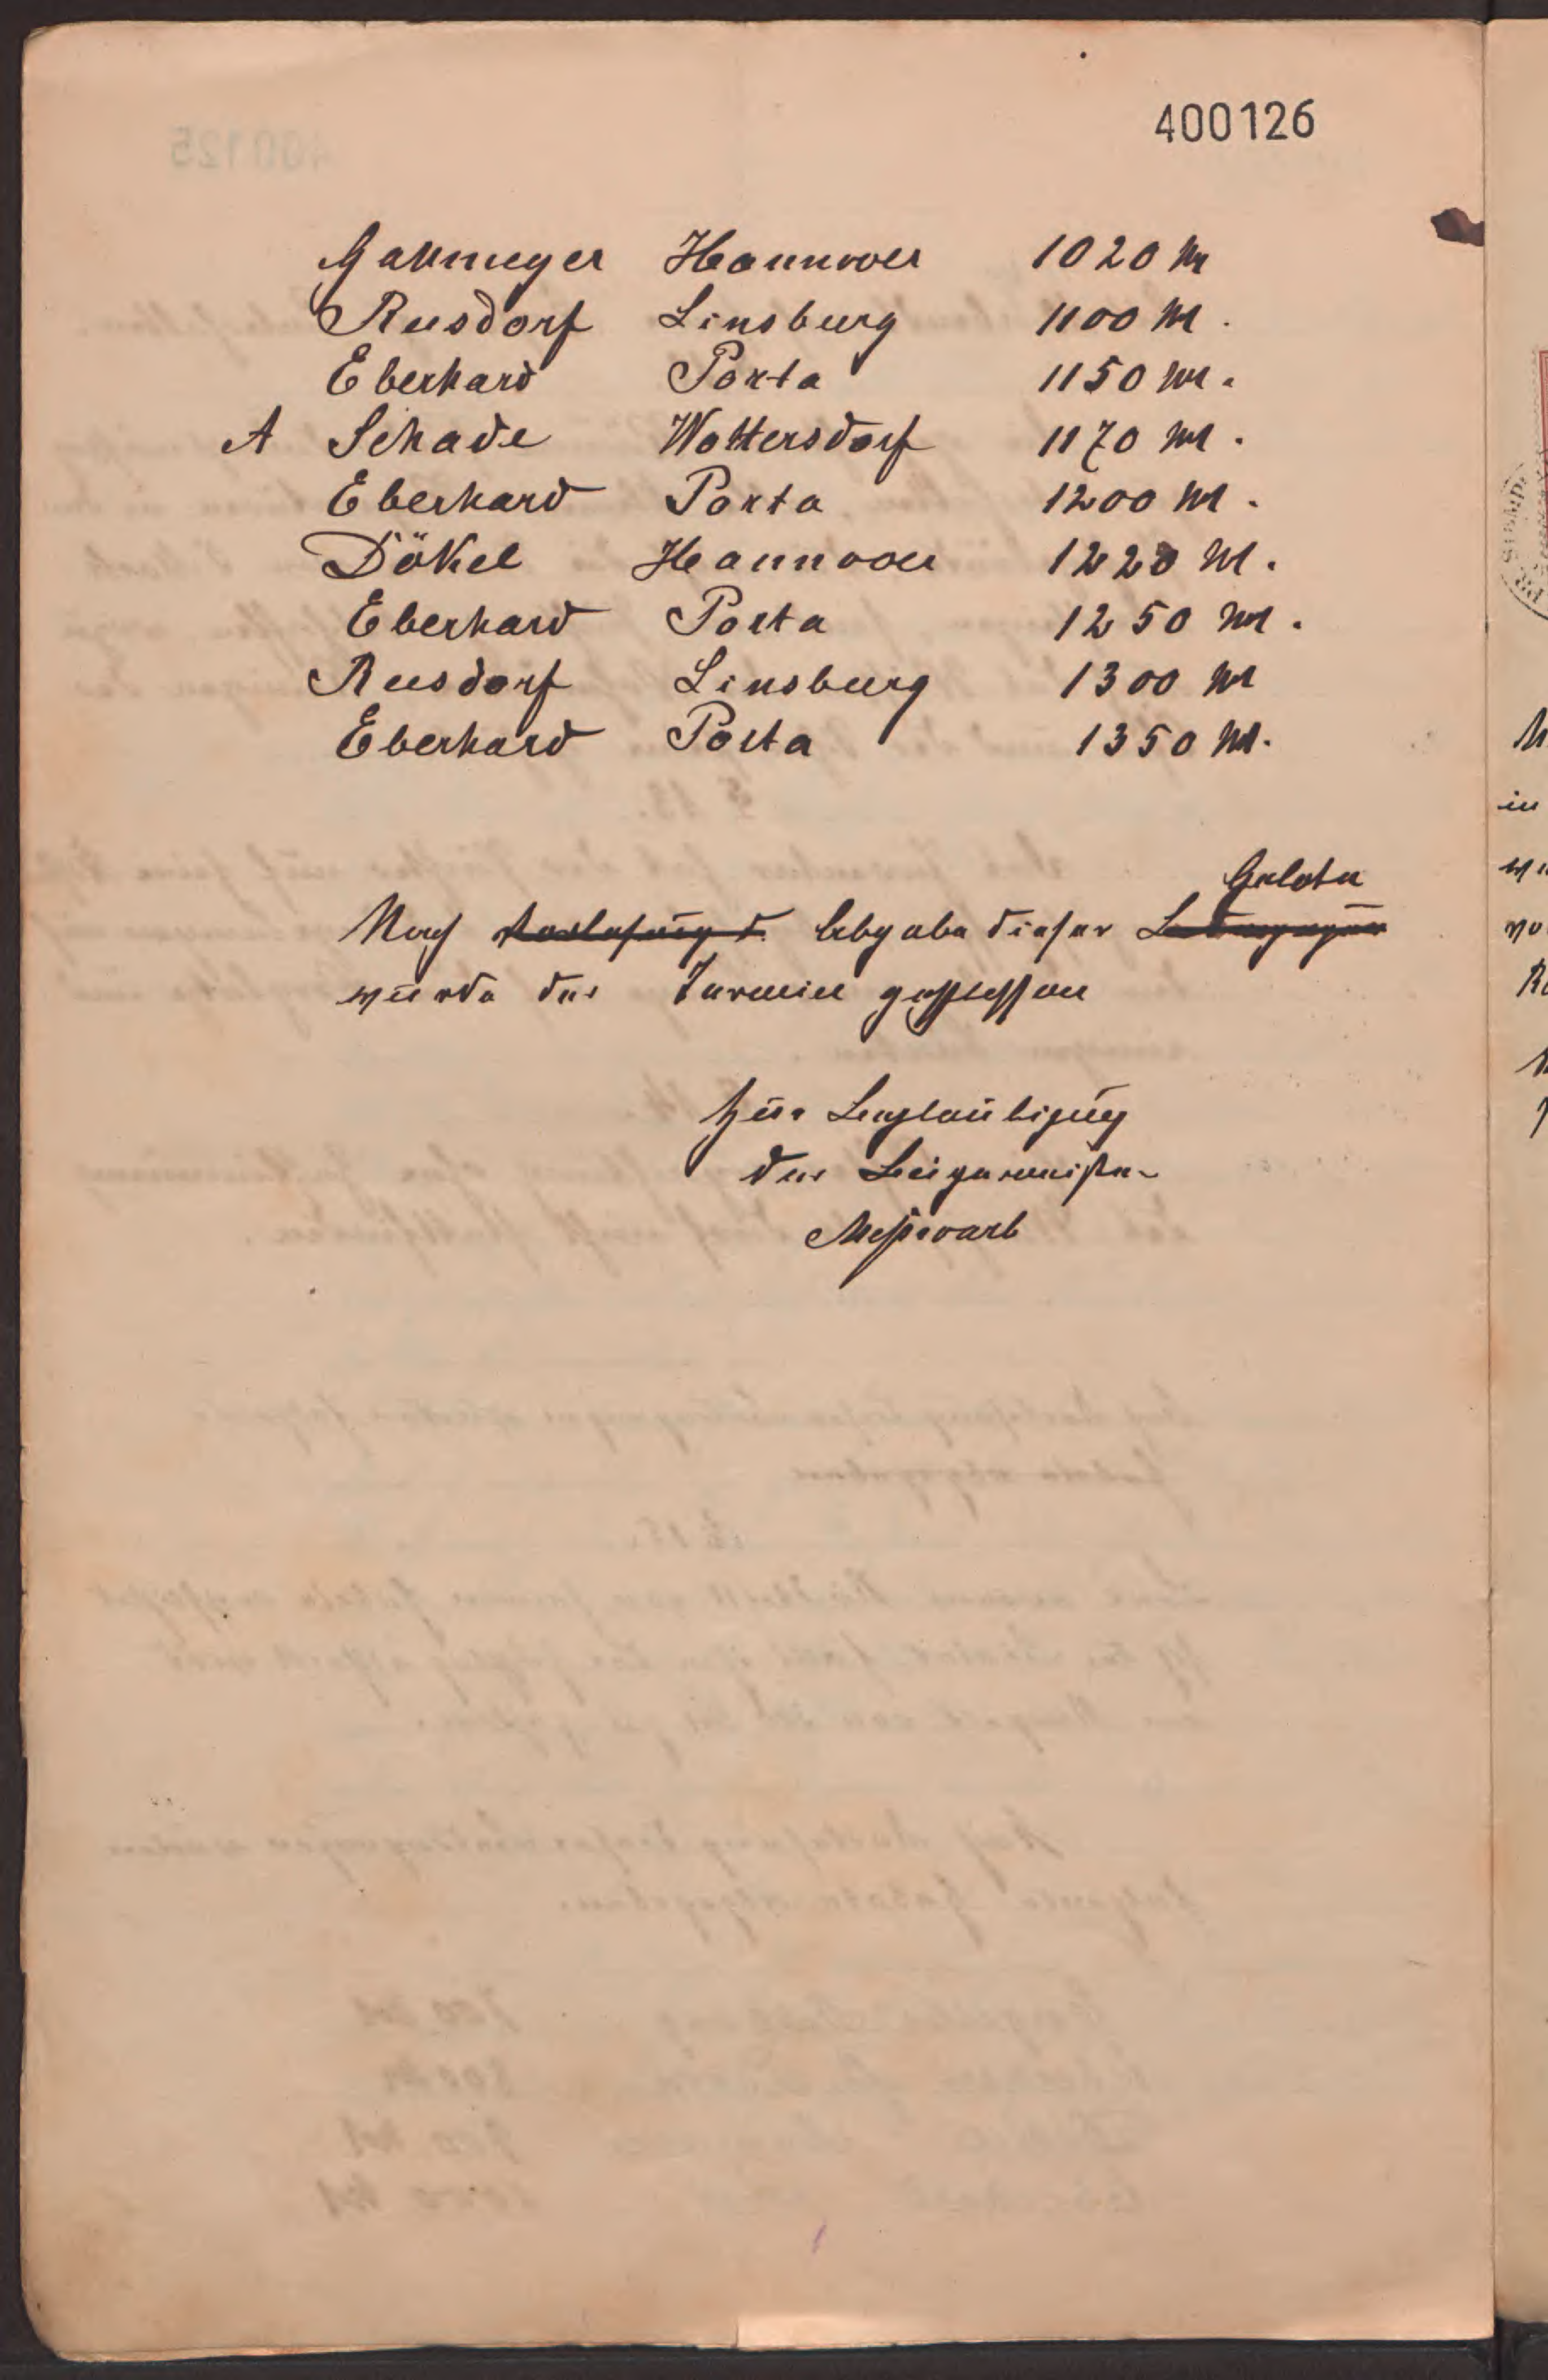 400126
Gallmeyer Hannover 1020 M
Rusdorf Linsburg 1100 M.
Eberhard Porta 1150 M.
A Schade Woltersdorf 1170 M.
Eberhard Porta 1200 M.
Dökel Hannover 1220 M.
Eberhard Porta 1250 M.
Rusdorf Linsburg 1300 M
Eberhard Porta 1350 M.
Gebote
Nach Verlesung d. Abgabe dieser Bedingungen
wurde der Termin geschlossen
Zur Beglaubigung
der Bürgermeister